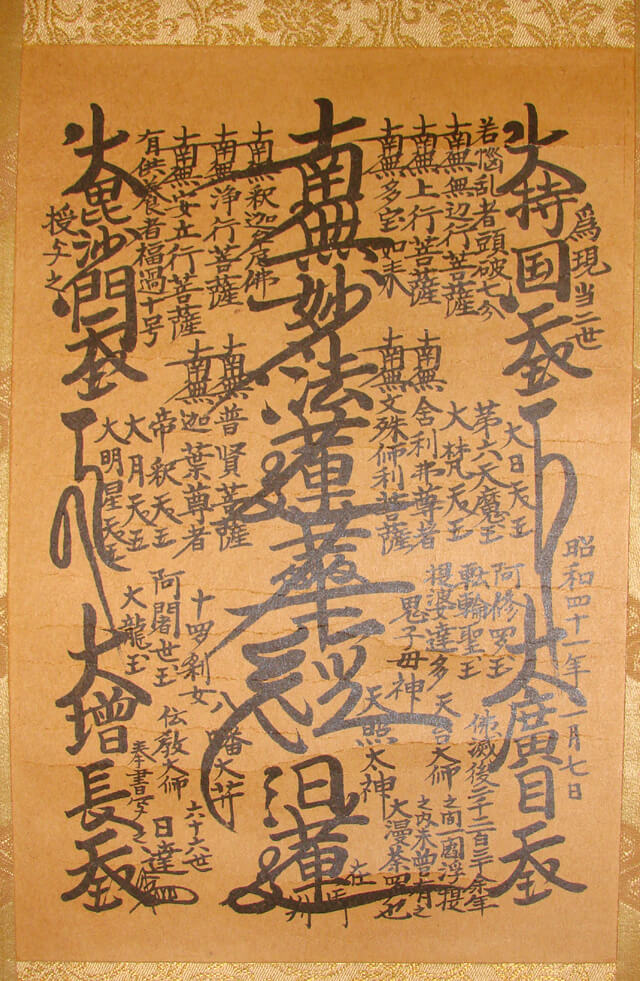 為現当二世
昭和四十一年一月七日
大持国天王
大廣目天王
若悩乱者頭破七分
南無無辺行菩薩
南無上行菩薩
南無多宝如来
南無妙法蓮華経
日蓮
在
南無釈迦牟尼佛
南無浄行菩薩
南無安立行菩薩
有供養者福過十号
大毘沙門天王
授与之
大日天王
第六天魔王
大梵天王
南無舍利弗尊者
南無文殊師利菩薩
南無普賢菩薩
南無迦葉尊者
帝釈天王
大月天王
大明星天王
阿修羅王
転輪聖王
提婆達多
鬼子母神
十羅刹女
阿闍世王
大龍王
佛滅後二千二百三十余年
之間一閻浮提
之内未曽有之
大漫荼羅也
天台大師
天照太神
八幡大菩薩
伝教大師
六十六世
日達
奉書写之
大増長天王